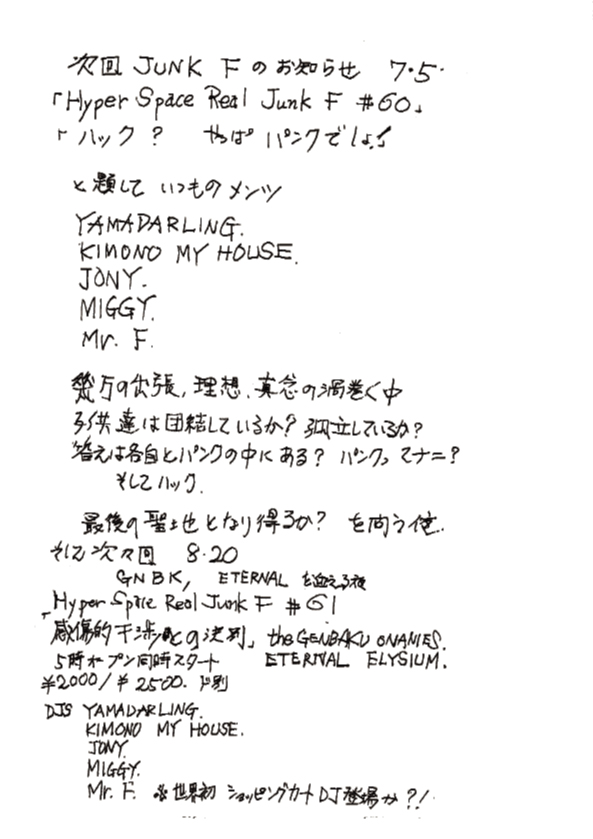 次回 JUNK F のお知らせ 7・5・
「Hyper Space Real Junk F #60」
「ハック? やっぱ パンクでしょ!
と題して いつものメンツ
YAMADARLING.
KIMONO MY HOUSE.
JONY.
MIGGY.
Mr. F.
幾万の出張,理想,真念の渦巻く中
子供達は団結しているか? 孤立しているか?
答えは各自とパンクの中にある? パンクってナニ?
そしてハック.
最後の聖地となり得るか? を問う
そして次々回 8・20
GNBK, ETERNAL を迎える夜
「Hyper Space Real Junk F #61
感傷的干渉との決別」 the GENBAKU ONANIES.
5時オープン同時スタート ETERNAL ELYSIUM.
¥2000/¥2500. ド別
DJS YAMADARLING.
KIMONO MY HOUSE.
JONY.
MIGGY.
Mr. F. ※世界初 ショッピングカートDJ登場か?!